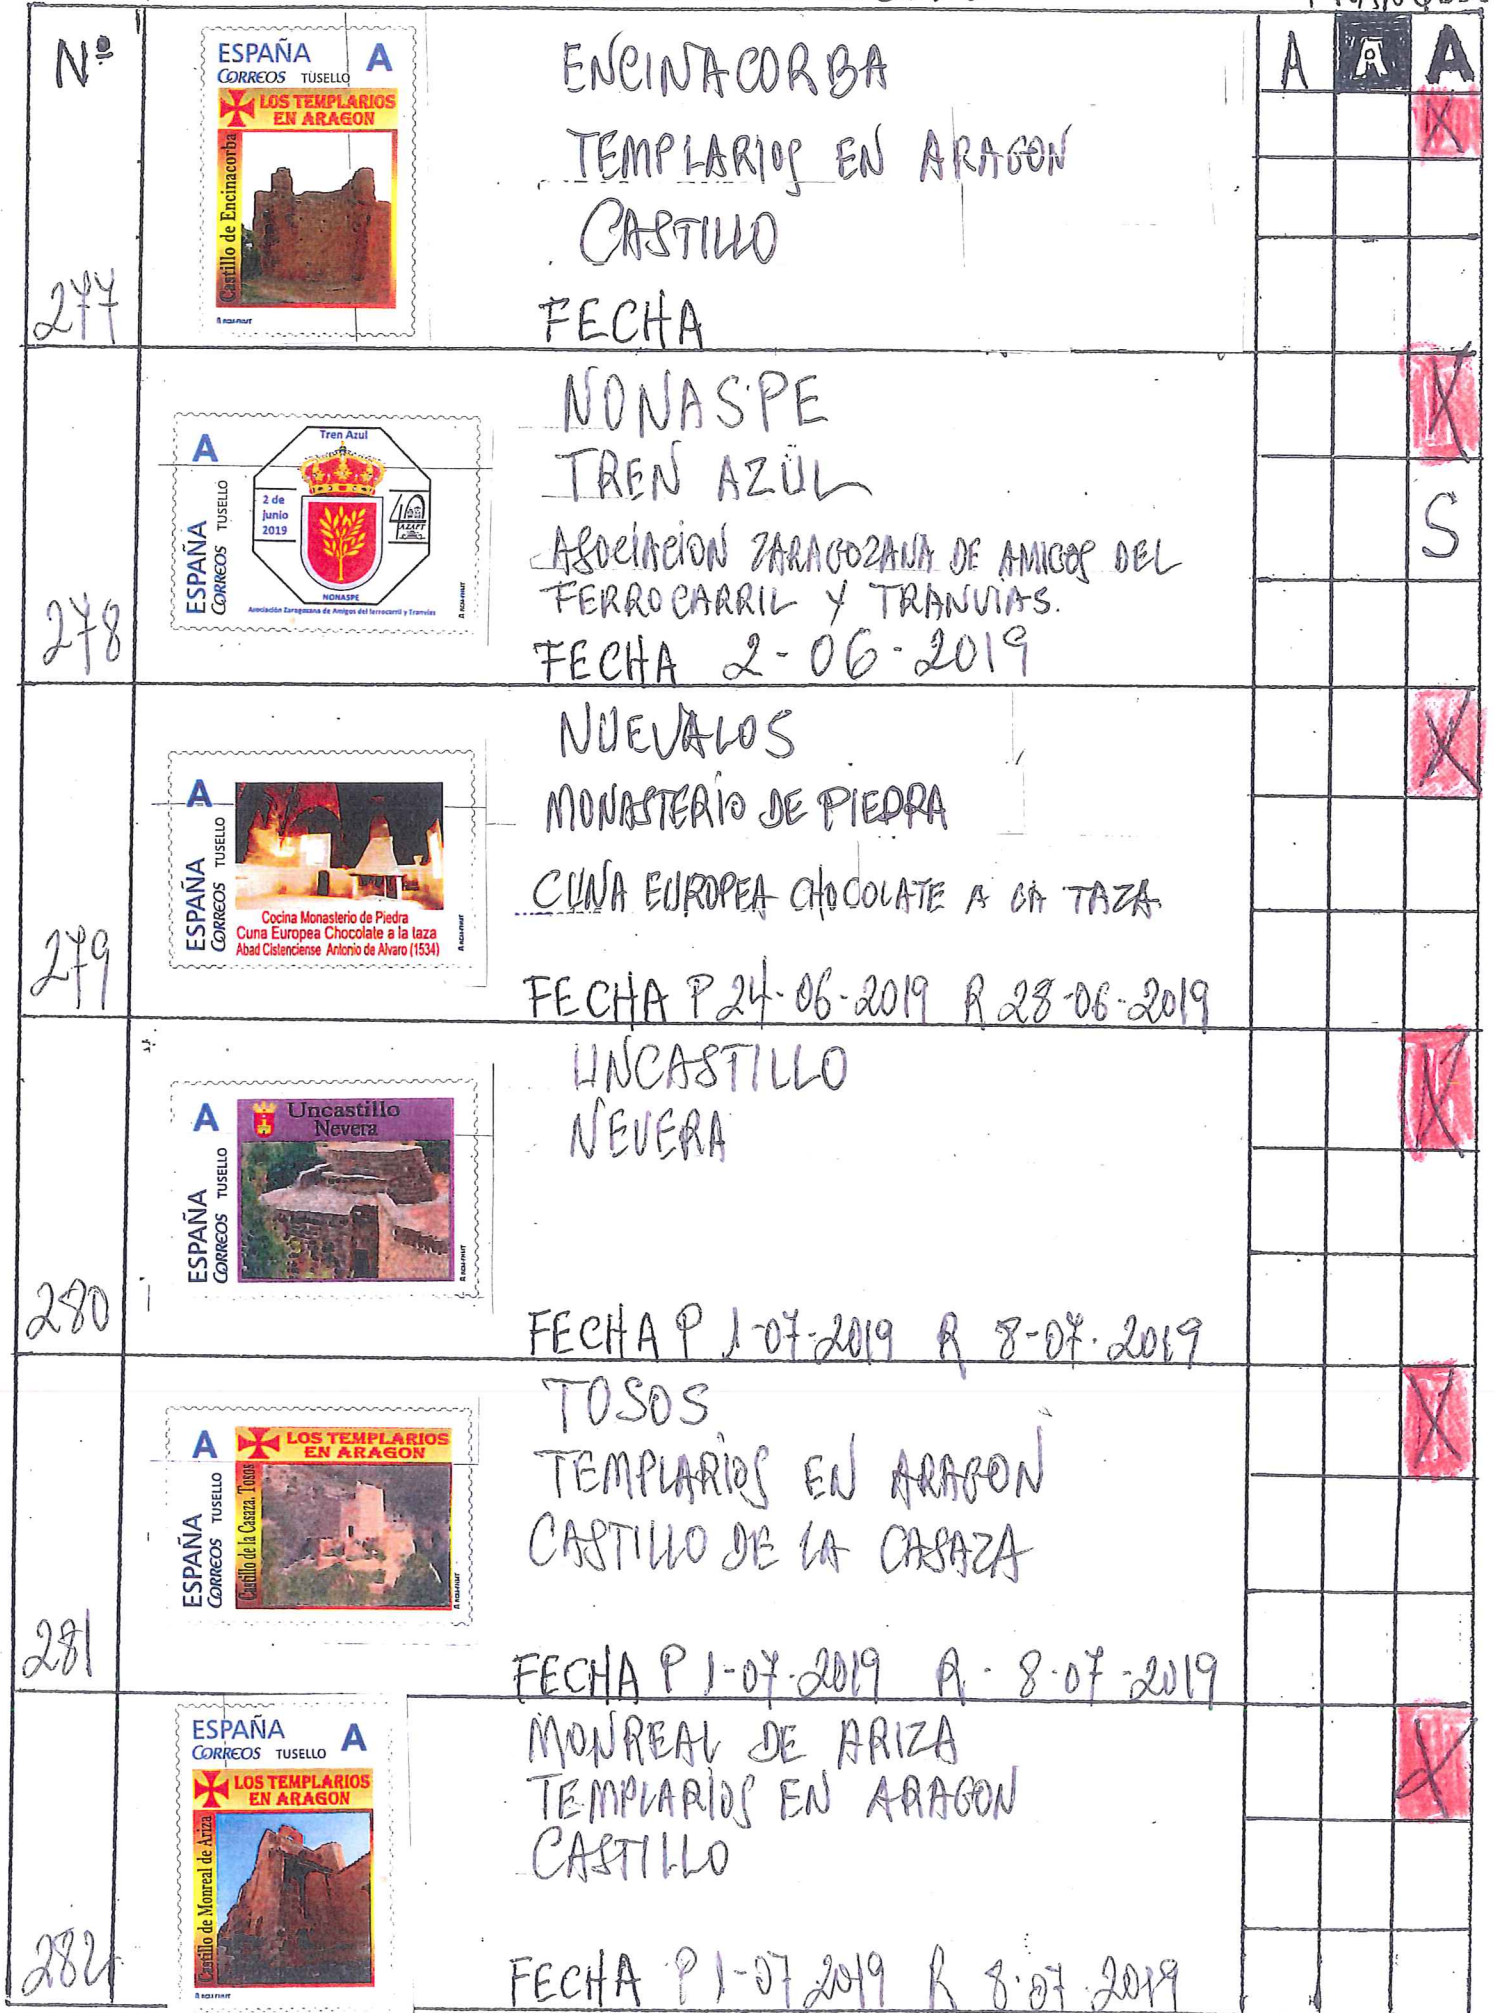 Nº
A A A
ESPAÑA A
CORREOS TUSELLO
LOS TEMPLARIOS
EN ARAGON
Castillo de Encinacorba
ENCINACORBA
TEMPLARIOS EN ARAGON
CASTILLO
FECHA
277
X
A
ESPAÑA
CORREOS TUSELLO
Tren Azul
2 de
junio
2019
40
AZAFT
NONASPE
Asociación Zaragozana de Amigos del ferrocarril y Tranvías
NONASPE
TREN AZUL
ASOCIACION ZARAGOZANA DE AMIGOS DEL
FERROCARRIL Y TRANVIAS.
FECHA 2-06-2019
278
X
S
A
ESPAÑA
CORREOS TUSELLO
Cocina Monasterio de Piedra
Cuna Europea Chocolate a la taza
Abad Cistenciense Antonio de Alvaro (1534)
NUEVALOS
MONASTERIO DE PIEDRA
CUNA EUROPEA CHOCOLATE A LA TAZA
FECHA P 24-06-2019 R 28-06-2019
279
X
A
ESPAÑA
CORREOS TUSELLO
Uncastillo
Nevera
UNCASTILLO
NEVERA
FECHA P 1-07-2019 R 8-07-2019
280
X
A
ESPAÑA
CORREOS TUSELLO
LOS TEMPLARIOS
EN ARAGON
Castillo de la Casaza. Tosos
TOSOS
TEMPLARIOS EN ARAGON
CASTILLO DE LA CASAZA
FECHA P 1-07-2019 R - 8-07-2019
281
X
ESPAÑA A
CORREOS TUSELLO
LOS TEMPLARIOS
EN ARAGON
Castillo de Monreal de Ariza
MONREAL DE ARIZA
TEMPLARIOS EN ARAGON
CASTILLO
FECHA P 1-07-2019 R 8-07-2019
282
X